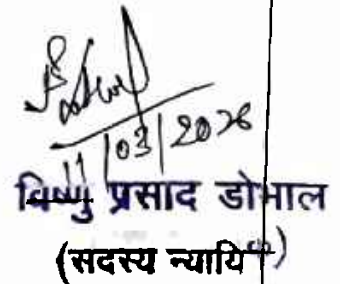 11/03/2026
विष्णु प्रसाद डोभाल
(सदस्य न्यायिक)